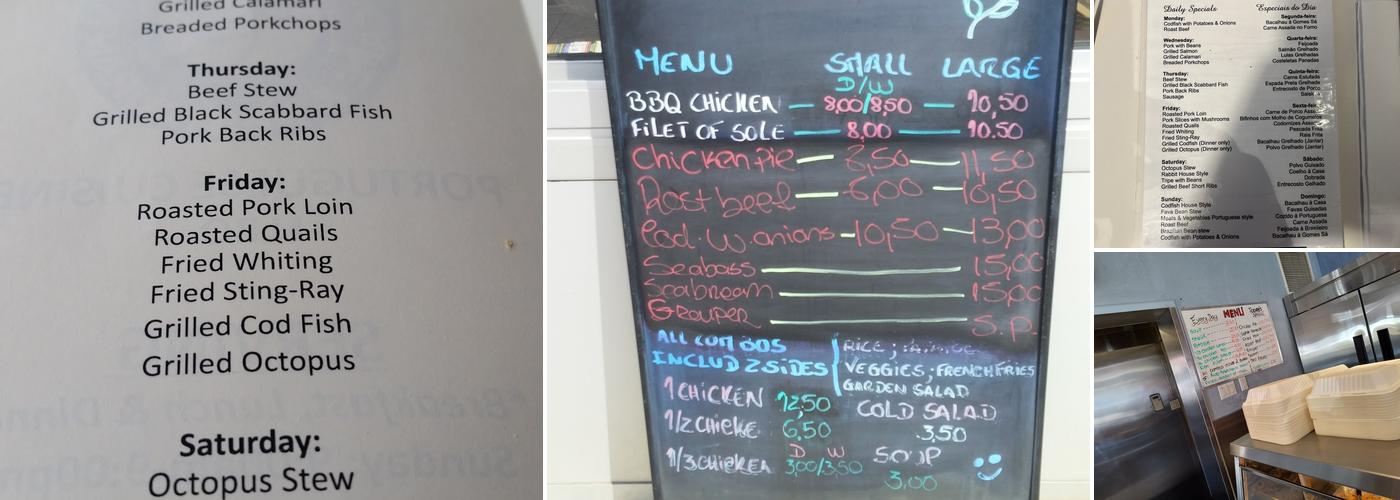 Grilled Calamari
Breaded Porkchops
Thursday:
Beef Stew
Grilled Black Scabbard Fish
Pork Back Ribs
Friday:
Roasted Pork Loin
Roasted Quails
Fried Whiting
Fried Sting-Ray
Grilled Cod Fish
Grilled Octopus
Saturday:
Octopus Stew
MENU SMALL LARGE
D/W
BBQ CHICKEN — 8,00/8,50 — 10,50
FILET OF SOLE — 8,00 — 10.50
Chicken pie — 8,50 — 11,50
Rost beef — 6,00 — 10,50
Cod. W. onions — 10,50 — 13,00
Seabass — 15,00
Seabream — 15,00
Grouper — S.P.
ALL COMBOS
INCLUD 2 SIDES
RICE ;
VEGGIES ; FRENCH FRIES
GARDEN SALAD
1 CHICKEN 12,50
1/2 CHICKE 6,50
D W
1/3 CHICKEN 3,00/3,50
COLD SALAD
3,50
SOUP
3,00
Daily Specials Especiais do Dia
Monday:
Codfish with Potatoes & Onions
Roast Beef
Wednesday:
Pork with Beans
Grilled Salmon
Grilled Calamari
Breaded Porkchops
Thursday:
Beef Stew
Grilled Black Scabbard Fish
Pork Back Ribs
Sausage
Friday:
Roasted Pork Loin
Pork Slices with Mushrooms
Roasted Quails
Fried Whiting
Fried Sting-Ray
Grilled Codfish (Dinner only)
Grilled Octopus (Dinner only)
Saturday:
Octopus Stew
Rabbit House Style
Tripe with Beans
Grilled Beef Short Ribs
Sunday:
Codfish House Style
Fava Bean Stew
Meats & Vegetables Portuguese style
Roast Beef
Brazilian Bean stew
Codfish with Potatoes & Onions
Segunda-feira:
Bacalhau à Gomes Sá
Carne Assada no Forno
Quarta-feira:
Feijoada
Salmão Grelhado
Lulas Grelhadas
Costeletas Panadas
Quinta-feira:
Carne Estufada
Espada Preta Grelhada
Entrecosto de Porco
Sexta-feira:
Carne de Porco
Bifinhos com Molho de Cogumelos
Codornizes
Pescada Frita
Raia Frita
Bacalhau Grelhado (Jantar)
Polvo Grelhado (Jantar)
Sábado:
Polvo Guisado
Coelho à Casa
Dobrada
Entrecosto Grelhado
Domingo:
Bacalhau à Casa
Favas Guisadas
Cozido à Portuguesa
Carne Assada
Feijoada à Brasileira
Bacalhau à Gomes Sá
Every Day MENU